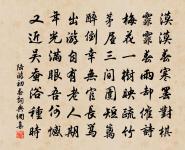 漠漠春寒罷對棋
霏霏春雨却催詩
梅花一樹映疏竹
茅屋三間圍短籬
醉倒幸無官長罵
出遊自有老人期
年光滿眼吾何憾
又近吳蠶浴種時
陸游初春詞典網集